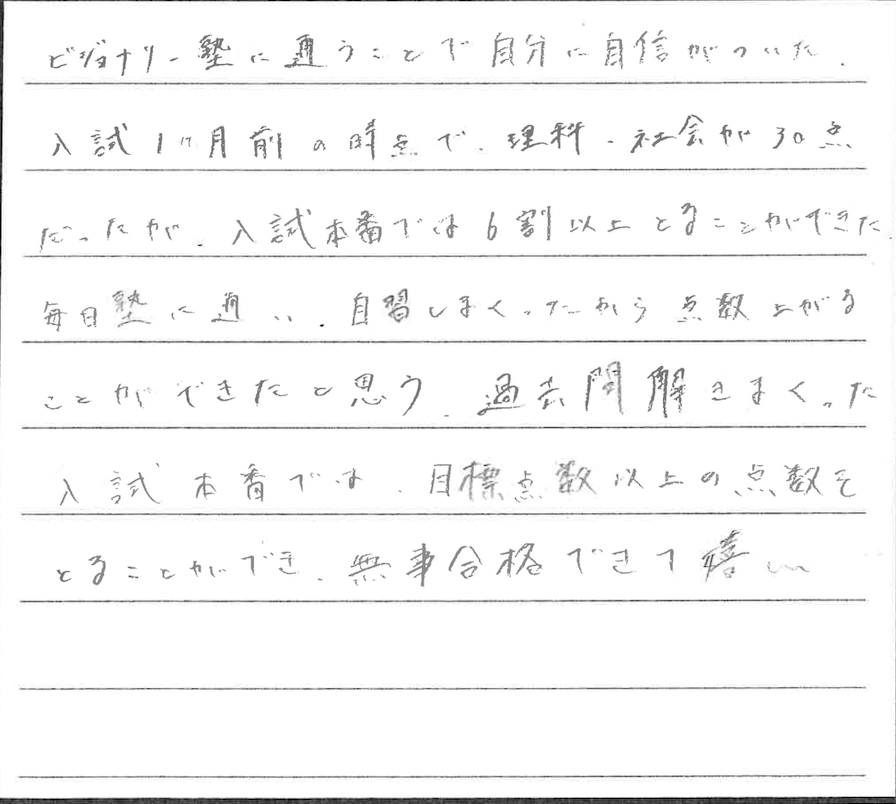 ビジョナリー塾に通うことで自分に自信がついた.
入試1ヶ月前の時点で、理科・社会が30点
だったが、入試本番では6割以上とることができた.
毎日塾に通い、自習しまくったから点数上がる
ことができたと思う、過去問解きまくった
入試本番では、目標点数以上の点数を
とることができ、無事合格できて嬉しい